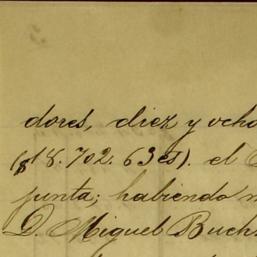 dores, diez y ocho
($18.702.63cs). el
junta; habiendo
D. Miguel Buch